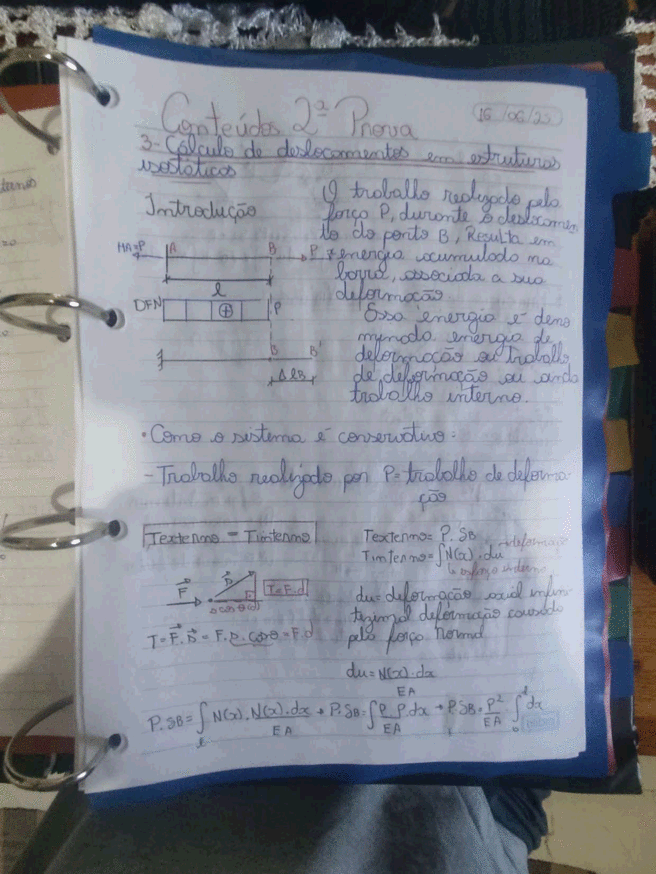 Conteúdos 2ª Prova
16/06/25
3- Cálculo de deslocamentos em estruturas
isostáticas
Introdução
O trabalho realizado pela
força P, durante o deslocamen
to do ponto B, Resulta em
energia acumulada na
barra, associada a sua
deformação
Essa energia é deno
minada energia de
deformação ou trabalho
de deformação ou ainda
trabalho interno.
HA=P A B P
l
DFN + P
B B'
ΔlB
• Como o sistema é conservativo:
- Trabalho realizado por P = trabalho de deforma-
ção
Texterno = Tinterno
Texterno = P. δB
Tinterno = ∫N(x). du → deformação
↳ esforço interno
F D T=F.d
D cos θ d
T = F. D = F. D. cos θ = F. d
du = deformação axial infini
tezimal deformação causada
pela força Normal
du = N(x). dx
EA
P. δB = ∫ N(x). N(x). dx → P. δB = ∫ P. P. dx → P. δB = P² ∫ dx
l EA EA EA 0 l